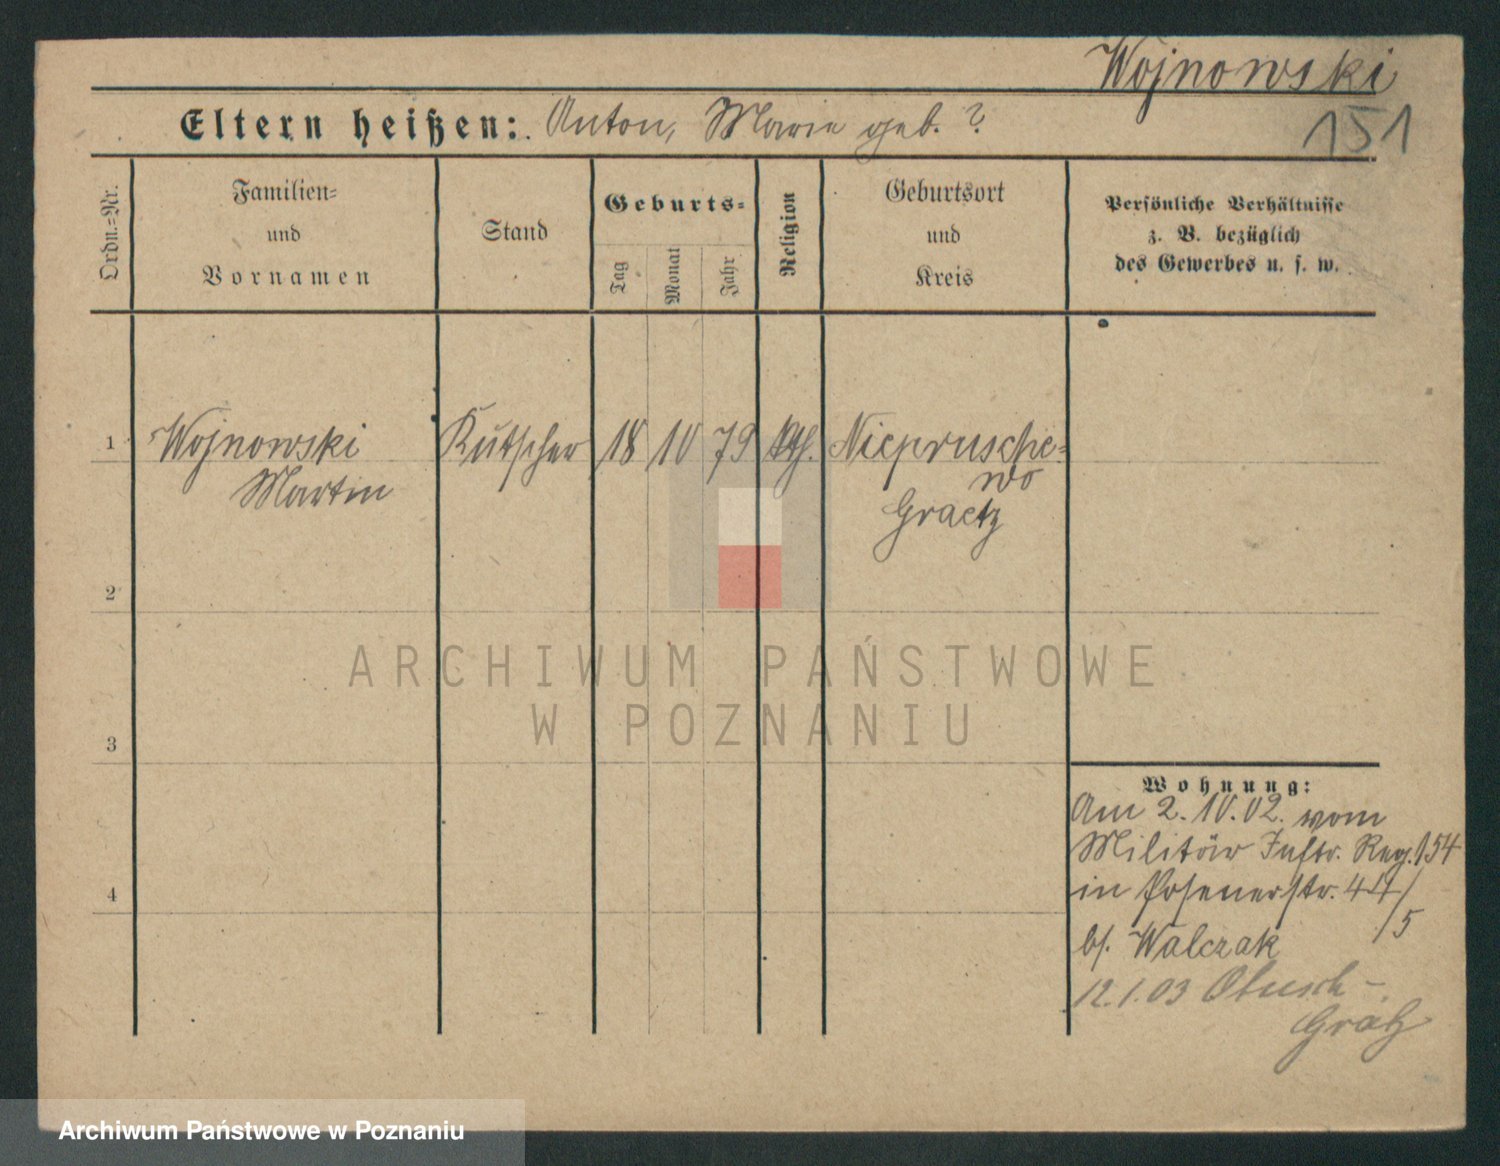 Wojnowski
151
Eltern heißen: Anton, Marie geb. ?
Ordn.=Nr.
Familien=
und
Vornamen
Stand
Geburts=
Tag
Monat
Jahr
Religion
Geburtsort
und
Kreis
Persönliche Verhältnisse
z. B. bezüglich
des Gewerbes u. s. w.
1 Wojnowski Kutscher 18 10 79 kth. Nieprusche=
Martin wo
Graetz
2
ARCHIWUM PAŃSTWOWE
W POZNANIU
3
Wohnung:
Am 2.10.02. vom
Militär Inftr. Reg. 154
in Posenerstr.
4
/5
b/. Walczak
12.1.03
Grätz
Archiwum Państwowe w Poznaniu